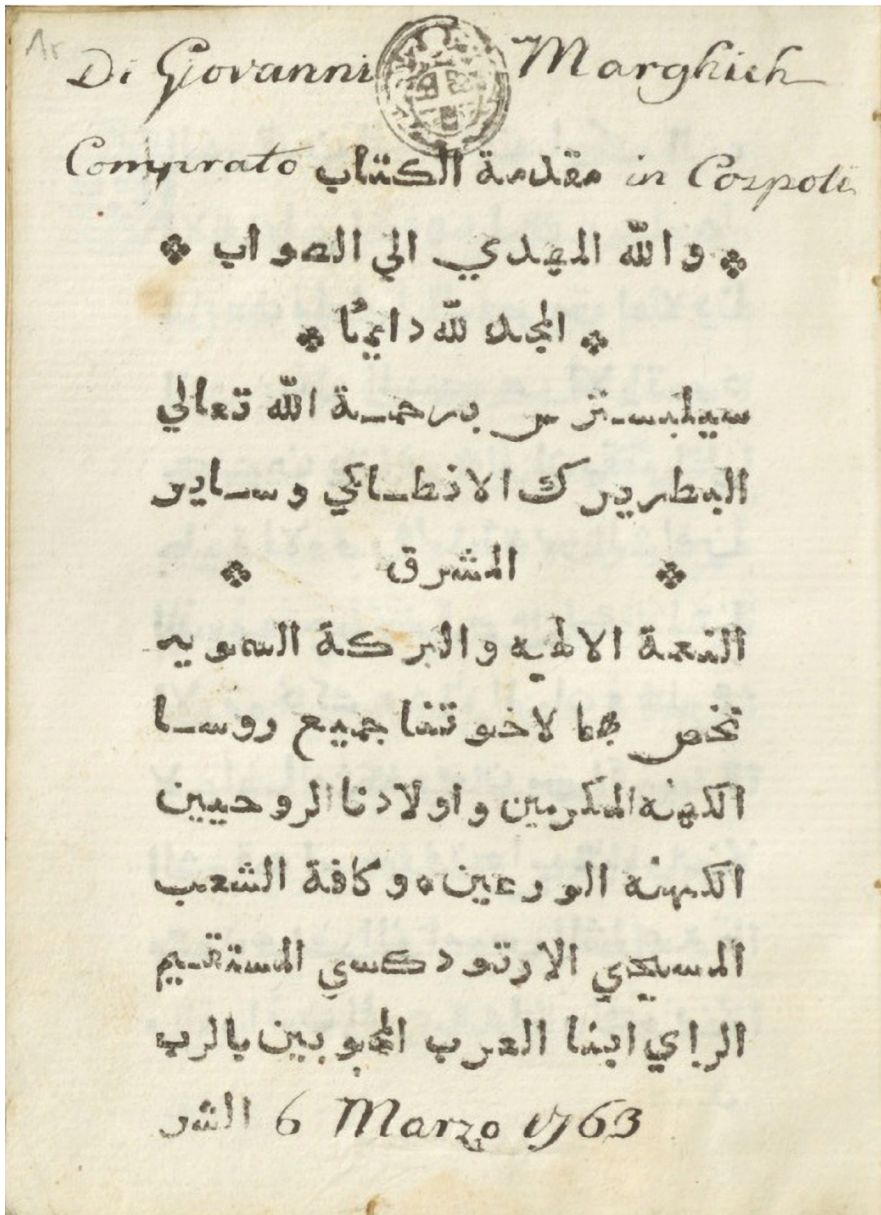 1r
Di Giovanni Marghich
Comprato مقدمة الكتاب in Cospoli
والله المهدي الي الصواب
المجد لله دايمًا
سيلبستر س برحمة الله تعالي
البطريرك الانطاكي وساير
المشرق
النعمة الالهيه والبركة السمويه
تخص بها لاخوتنا جميع روسا
الكهنه المكرمين واولادنا الروحيين
الكهنه الورعين وكافة الشعب
المسيحي الارتودكسي المستقيم
الراي ابنا العرب المحبوبين بالرب
الشر 6 Marzo 1763